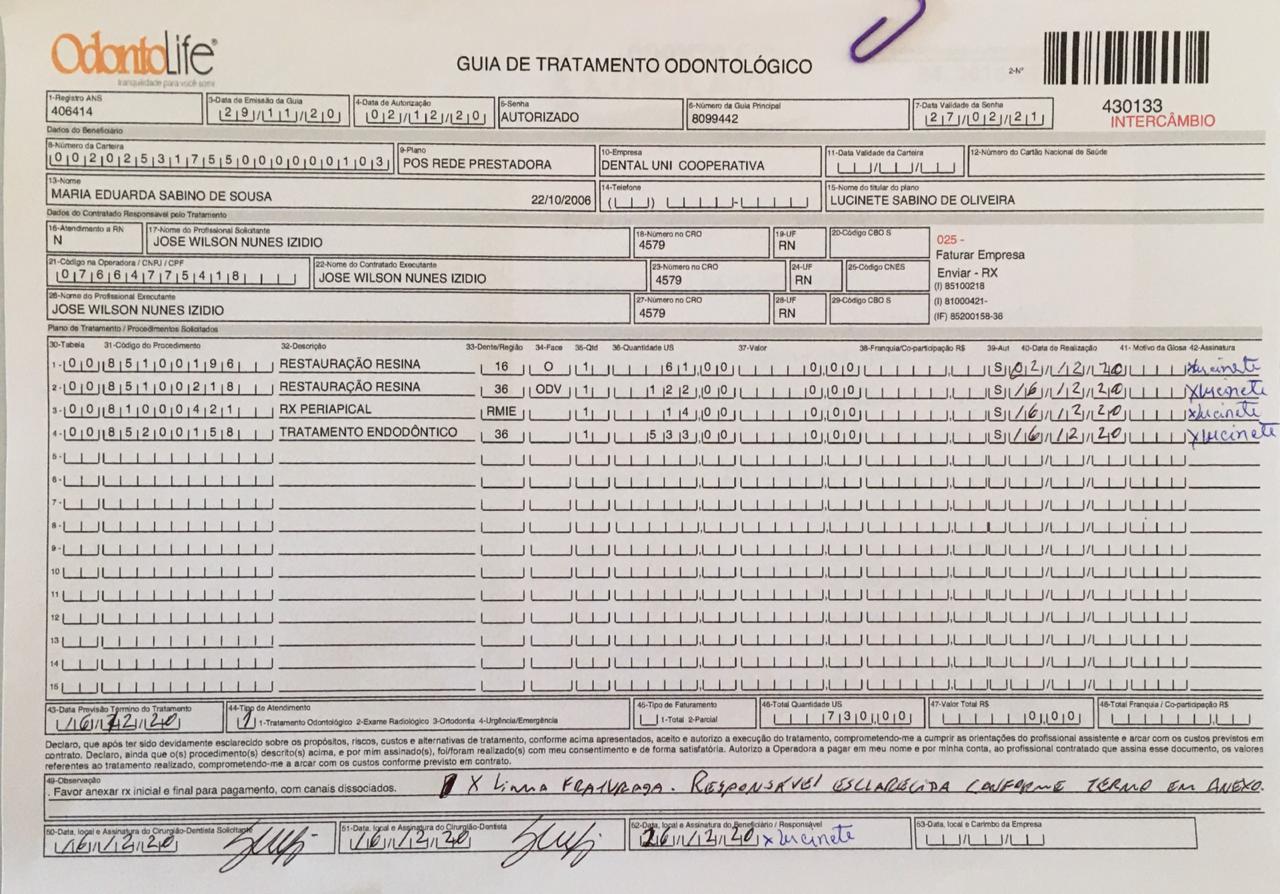 OdontoLife®
tranquilidade para você sorrir
GUIA DE TRATAMENTO ODONTOLÓGICO
2-Nº
430133
INTERCÂMBIO
1-Registro ANS
406414
3-Data de Emissão da Guia
29/11/20
4-Data de Autorização
02/12/20
5-Senha
AUTORIZADO
6-Número da Guia Principal
8099442
7-Data Validade da Senha
27/02/21
Dados do Beneficiário
8-Número da Carteira
00202531755000000103
9-Plano
POS REDE PRESTADORA
10-Empresa
DENTAL UNI COOPERATIVA
11-Data Validade da Carteira
12-Número do Cartão Nacional de Saúde
13-Nome
MARIA EDUARDA SABINO DE SOUSA 22/10/2006
14-Telefone
15-Nome do titular do plano
LUCINETE SABINO DE OLIVEIRA
Dados do Contratado Responsável pelo Tratamento
16-Atendimento a RN
N
17-Nome do Profissional Solicitante
JOSE WILSON NUNES IZIDIO
18-Número no CRO
4579
19-UF
RN
20-Código CBO S
025 -
Faturar Empresa
Enviar - RX
(I) 85100218
(I) 81000421-
(IF) 85200158-36
21-Código na Operadora / CNPJ / CPF
07664775418
22-Nome do Contratado Executante
JOSE WILSON NUNES IZIDIO
23-Número no CRO
4579
24-UF
RN
25-Código CNES
26-Nome do Profissional Executante
JOSE WILSON NUNES IZIDIO
27-Número no CRO
4579
28-UF
RN
29-Código CBO S
Plano de Tratamento / Procedimentos Solicitados
30-Tabela 31-Código do Procedimento 32-Descrição 33-Dente/Região 34-Face 35-Qtd 36-Quantidade US 37-Valor 38-Franquia/Co-participação R$ 39-Aut 40-Data de Realização 41- Motivo da Glosa 42-Assinatura
1- 00 85100196 RESTAURAÇÃO RESINA 16 O 1 61,00 0,00 S 02/12/20 x lucinete
2- 00 85100218 RESTAURAÇÃO RESINA 36 ODV 1 122,00 0,00 S 16/12/20 x lucinete
3- 00 81000421 RX PERIAPICAL RMIE 1 14,00 0,00 S 16/12/20 x lucinete
4- 00 85200158 TRATAMENTO ENDODÔNTICO 36 1 533,00 0,00 S 16/12/20 x lucinete
5-
6-
7-
8-
9-
10
11
12
13
14
15
43-Data Previsão Término do Tratamento
16/12/20
44-Tipo de Atendimento
1 1-Tratamento Odontológico 2-Exame Radiológico 3-Ortodontia 4-Urgência/Emergência
45-Tipo de Faturamento
1-Total 2-Parcial
46-Total Quantidade US
730,00
47-Valor Total R$
0,00
48-Total Franquia / Co-participação R$
Declaro, que após ter sido devidamente esclarecido sobre os propósitos, riscos, custos e alternativas de tratamento, conforme acima apresentados, aceito e autorizo a execução do tratamento, comprometendo-me a cumprir as orientações do profissional assistente e arcar com os custos previstos em
contrato. Declaro, ainda que o(s) procedimento(s) descrito(s) acima, e por mim assinado(s), foi/foram realizado(s) com meu consentimento e de forma satisfatória. Autorizo a Operadora a pagar em meu nome e por minha conta, ao profissional contratado que assina esse documento, os valores
referentes ao tratamento realizado, comprometendo-me a arcar com os custos conforme previsto em contrato.
49-Observação
. Favor anexar rx inicial e final para pagamento, com canais dissociados. X LIMA FRATURADA. RESPONSÁVEL ESCLARECIDA CONFORME TERMO EM ANEXO.
50-Data, local e Assinatura do Cirurgião-Dentista Solicitante
16/12/20
51-Data, local e Assinatura do Cirurgião-Dentista
16/12/20
52-Data, local e Assinatura do Beneficiário / Responsável
16/12/20 x lucinete
53-Data, local e Carimbo da Empresa